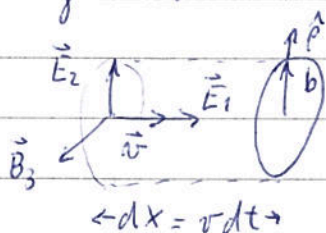 \vec{E}_2 \hat{\rho}
\vec{E}_1 b
\vec{B}_3 \vec{v}
←dx = v dt→